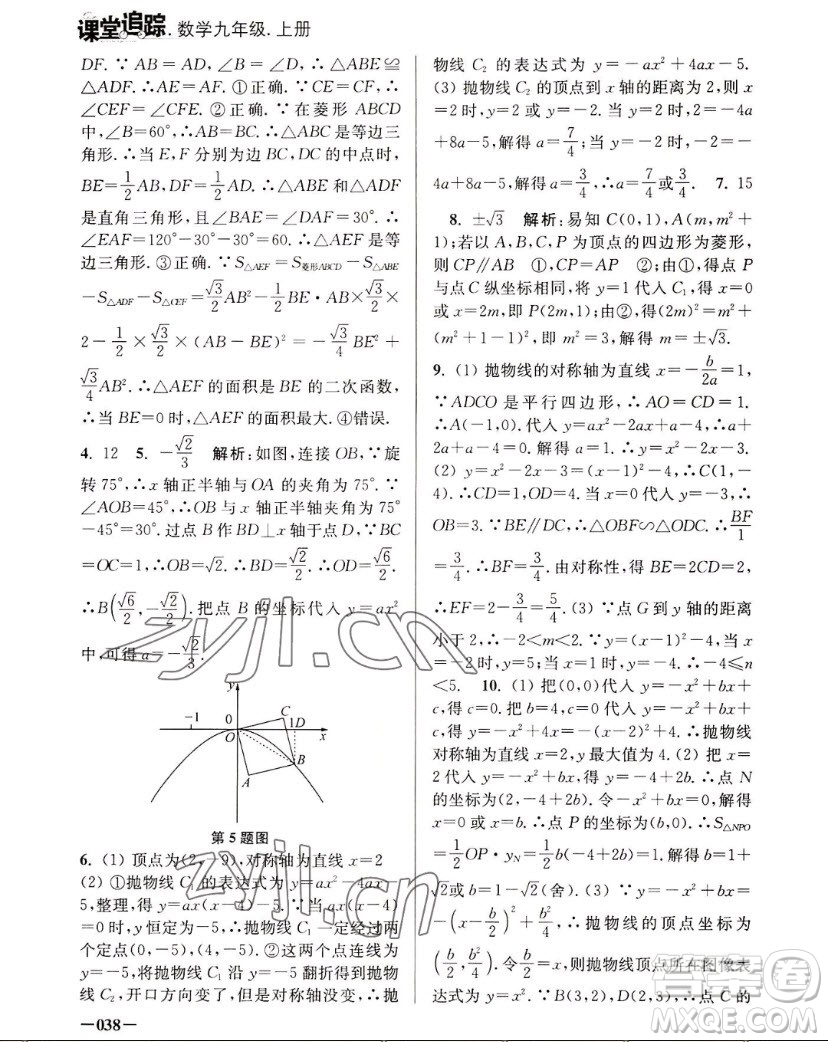 课堂追踪. 数学九年级. 上册
DF. ∵AB=AD, ∠B=∠D, ∴△ABE≌
△ADF. ∴AE=AF. ①正确. ∵CE=CF, ∴
∠CEF=∠CFE. ②正确. ∵在菱形 ABCD
中, ∠B=60°, ∴AB=BC. ∴△ABC 是等边三
角形. ∴当 E, F 分别为边 BC, DC 的中点时,
BE=1/2AB, DF=1/2AD. ∴△ABE 和△ADF
是直角三角形, 且∠BAE=∠DAF=30°. ∴
∠EAF=120°-30°-30°=60°. ∴△AEF 是等
边三角形. ③正确. ∵S△AEF=S菱形ABCD-S△ABE
-S△ADF-S△CEF=√3/2AB²-1/2BE·AB×√3/2×
2-1/2×√3/2×(AB-BE)²=-√3/4BE²+
√3/4AB². ∴△AEF 的面积是 BE 的二次函数,
∴当 BE=0 时, △AEF 的面积最大. ④错误.
4. 12 5. -√2/3 解析: 如图, 连接 OB, ∵旋
转 75°, ∴x 轴正半轴与 OA 的夹角为 75°. ∵
∠AOB=45°, ∴OB 与 x 轴正半轴夹角为 75°
-45°=30°. 过点 B 作 BD⊥x 轴于点 D, ∵BC
=OC=1, ∴OB=√2. ∴BD=√2/2. ∴OD=√6/2.
∴B(√6/2, -√2/2). 把点 B 的坐标代入 y=ax²
中, 可得 a=-√2/3.
y
-1 0 C 1D x
O
B
A
第 5 题图
6. (1) 顶点为(2, -9), 对称轴为直线 x=2
(2) ①抛物线 C₁ 的表达式为 y=ax²-4ax-
5, 整理, 得 y=ax(x-4)-5. ∵当 ax(x-4)
=0 时, y 恒定为-5, ∴抛物线 C₁ 一定经过两
个定点(0,-5), (4,-5). ②这两个点连线为
y=-5, 将抛物线 C₁ 沿 y=-5 翻折得到抛物线
C₂, 开口方向变了, 但是对称轴没变, ∴抛
—038—
物线 C₂ 的表达式为 y=-ax²+4ax-5.
(3) 抛物线 C₂ 的顶点到 x 轴的距离为 2, 则 x
=2 时, y=2 或 y=-2. 当 y=2 时, 2=-4a
+8a-5, 解得 a=7/4; 当 y=-2 时, -2=-
4a+8a-5, 解得 a=3/4; ∴a=7/4或3/4. 7. 15
8. ±√3 解析: 易知 C(0,1), A(m, m²+
1); 若以 A, B, C, P 为顶点的四边形为菱形,
则 CP∥AB ①, CP=AP ②; 由①, 得点 P
与点 C 纵坐标相同, 将 y=1 代入 C₁, 得 x=0
或 x=2m, 即 P(2m,1); 由②, 得(2m)²=m²+
(m²+1-1)², 即 m²=3, 解得 m=±√3.
9. (1) 抛物线的对称轴为直线 x=-b/2a=1,
∵ADCO 是平行四边形, ∴AO=CD=1.
∴A(-1,0). 代入 y=ax²-2ax+a-4, 得 a+
2a+a-4=0. 解得 a=1.
(2) y=x²-2x-3=(x-1)²-4, ∴C(1,-
4). ∴CD=1, OD=4. ∴当 x=0 代入 y=-3,
OB=3. ∵BE∥DC, ∴△OBF∽△ODC. ∴BF/1
=3/4. ∴BF=3/4. 由对称性, 得 BE=2CD=2,
∴EF=2-3/4=5/4. (3) ∵点 G 到 y 轴的距离
小于 2, ∴-2<m<2. ∵y=(x-1)²-4, 当 x
=-2 时, y=5. 当 x=1 时, y=-4. ∴-4≤n
<5. 10. (1) 把(0,0)代入 y=-x²+bx+
c, 得 c=0. 把 b=4, c=0 代入 y=-x²+bx+
c, 得 y=-x²+4x=-(x-2)²+4. ∴抛物线
对称轴为直线 x=2, y 有最大值 4. (2) 把 x=
2 代入, 得 y=-4+2b. ∴点 N
的坐标为(2,-4+2b). 令-x²+bx=0, 得 x=0
或 x=b. ∴点 P 的坐标为(b,0). ∴S△NPO=
1/2OP·yN=1/2b(-4+2b)=2√2. 解得 b=
√2或 b=-√2(舍). (3) ∵y=-x²+bx=
-(x-b/2)²+b²/4, ∴抛物线的顶点坐标为
(b/2, b²/4). 令b/2=x, 则抛物线顶点所在图像表
达式为 y=x². ∵B(0,2), D(2,3), ∴点 C 的
zyjl.cn
zyjl.cn
答案圈
MXQE.COM